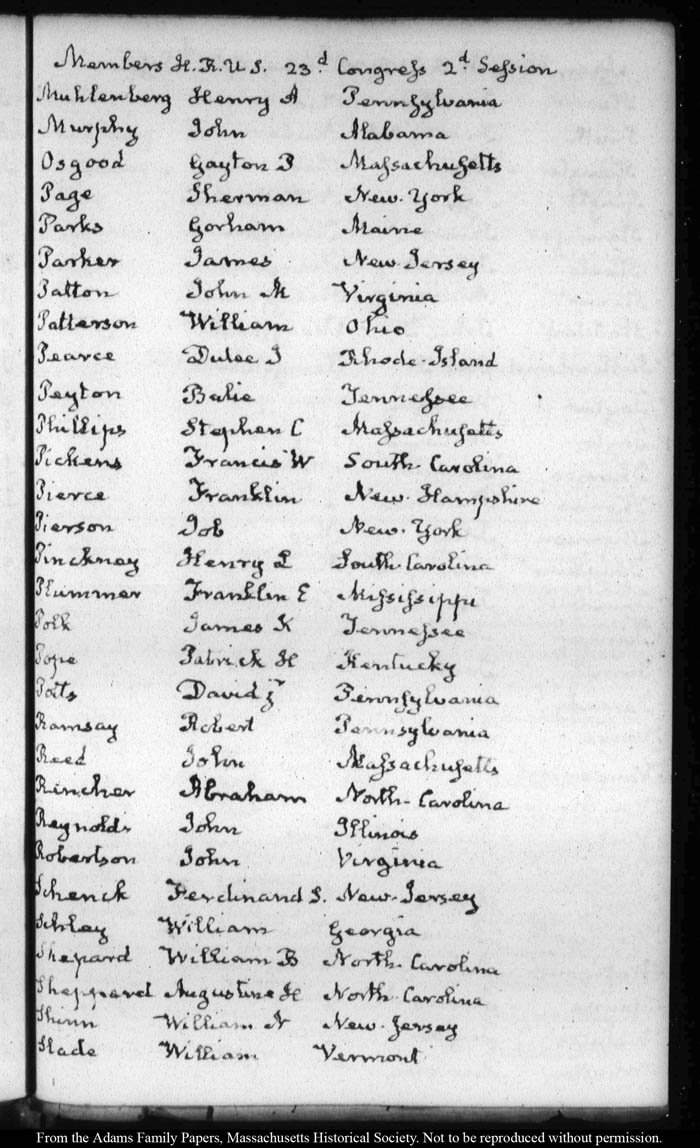 Members H. R. U. S. 23d Congress 2d Session
Muhlenberg Henry A Pennsylvania
Murphy John Alabama
Osgood Gayton P Massachusetts
Page Sherman New-York
Parks Gorham Maine
Parker James New-Jersey
Patton John M Virginia
Patterson William Ohio
Pearce Dutee J Rhode-Island
Peyton Balie Tennessee
Phillips Stephen C Massachusetts
Pickens Francis W South-Carolina
Pierce Franklin New-Hampshire
Pierson Job New-York
Pinckney Henry L South-Carolina
Plummer Franklin E Mississippi
Polk James K Tennessee
Pope Patrick H Kentucky
Potts David Jr Pennsylvania
Ramsay Robert Pennsylvania
Reed John Massachusetts
Rencher Abraham North-Carolina
Reynolds John Illinois
Robertson John Virginia
Schenck Ferdinand S. New-Jersey
Schley William Georgia
Shepard William B North-Carolina
Sheppard Augustine H North-Carolina
Shinn William N New-Jersey
Slade William Vermont
From the Adams Family Papers, Massachusetts Historical Society. Not to be reproduced without permission.